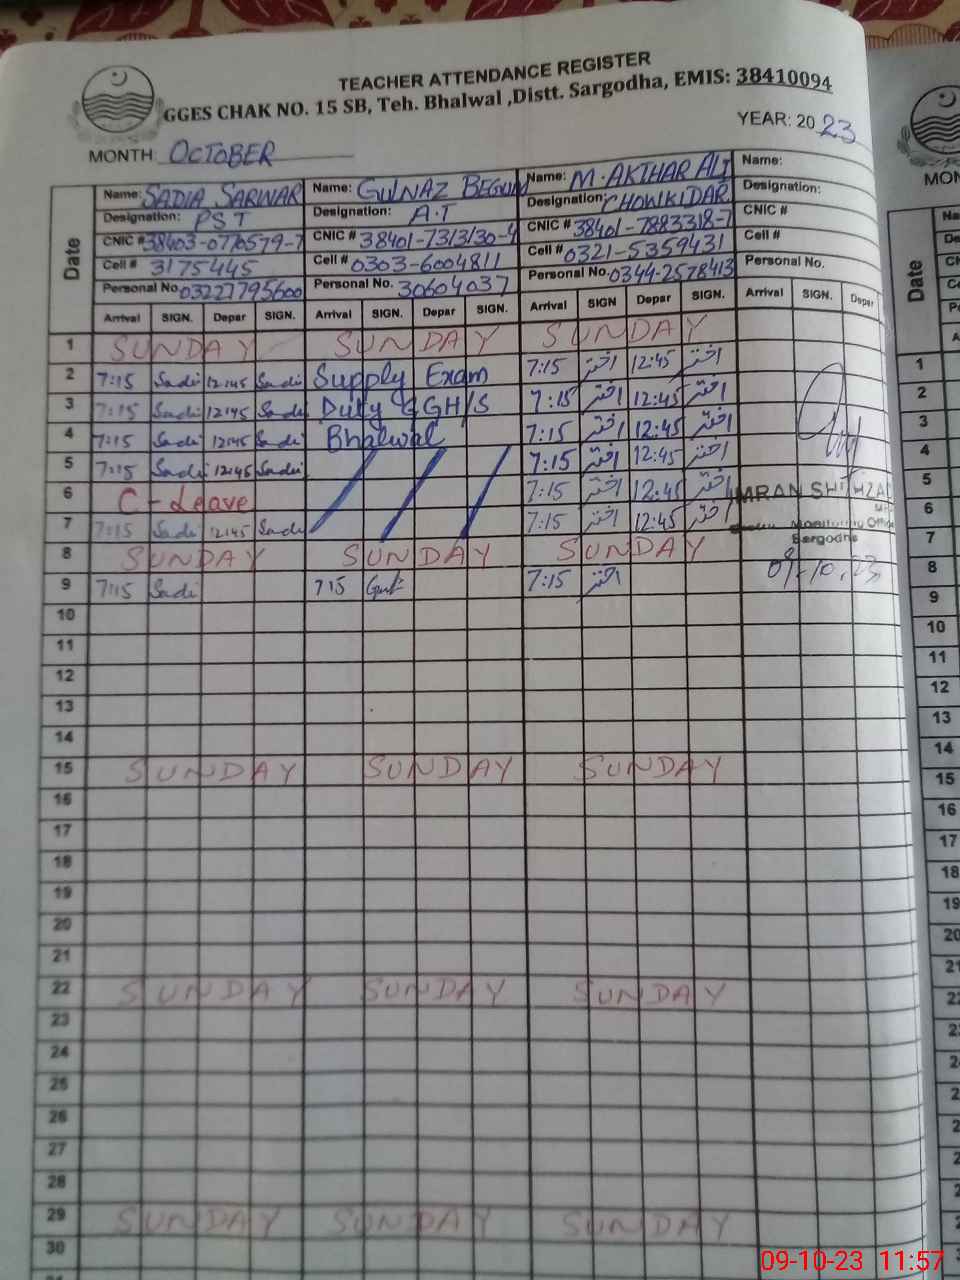 TEACHER ATTENDANCE REGISTER
GGES CHAK NO. 15 SB, Teh. Bhalwal ,Distt. Sargodha, EMIS: 38410094
MONTH: OCTOBER YEAR: 2023
Date
Name: SADIA SARWAR Name: GULNAZ BEGUM Name: M. AKTHAR ALI Name:
Designation: PST Designation: A.T Designation: CHOWKIDAR Designation:
CNIC # 38403-0776579-7 CNIC # 38401-7313130-4 CNIC # 38401-7883318-7 CNIC #
Cell # 3175445 Cell # 0303-6004811 Cell # 0321-5359431 Cell #
Personal No. 03227795600 Personal No. 30604037 Personal No. 0344-2578413 Personal No.
Arrival SIGN. Depar SIGN. Arrival SIGN. Depar SIGN. Arrival SIGN Depar SIGN. Arrival SIGN. Depar
1 SUNDAY SUNDAY SUNDAY
2 7:15 Sadi 12:45 Sadi Supply Exam 7:15 اختر 12:45 اختر
3 7:15 Sadi 12:45 Sadi Duty GGH/S 7:15 اختر 12:45 اختر
4 7:15 Sadi 12:45 Sadi Bhalwal 7:15 اختر 12:45 اختر
5 7:15 Sadi 12:45 Sadi 7:15 اختر 12:45 اختر
6 C-Leave 7:15 اختر 12:45 اختر
7 7:15 Sadi 12:45 Sadi 7:15 اختر 12:45 اختر
8 SUNDAY SUNDAY SUNDAY
9 7:15 Sadi 715 Gul 7:15 اختر
Monitoring Office
Sargodha
09-10.23
10
11
12
13
14
15 SUNDAY SUNDAY SUNDAY
16
17
18
19
20
21
22 SUNDAY SUNDAY SUNDAY
23
24
25
26
27
28
29 SUNDAY SUNDAY SUNDAY
30
MON
Date
1
2
3
4
5
6
7
8
9
10
11
12
13
14
15
16
17
18
19
20
21
22
09-10-23 11:57